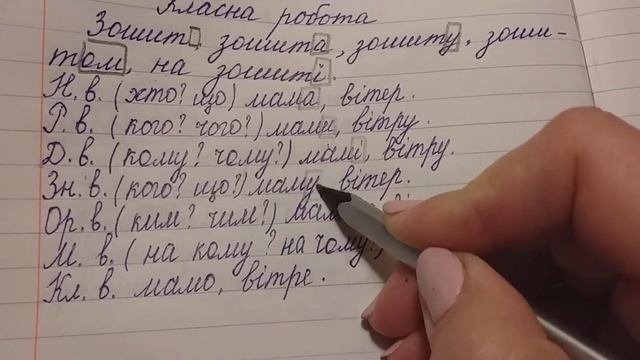 Класна робота
Зошит, зошита, зошиту, зоши-
том, на зошиті.
Н. в. (хто? що) мама, вітер.
Р. в. (кого? чого?) мами, вітру.
Д. в. (кому? чому?) мамі, вітру.
Зн. в. (кого? що?) маму вітер.
Ор. в. (ким? чим?)
М. в. (на кому? на чому?,
Кл. в. мамо, вітре.